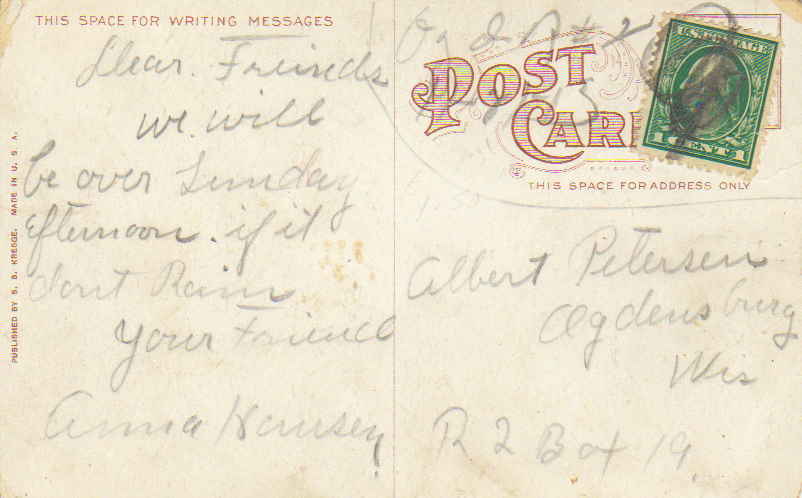 THIS SPACE FOR WRITING MESSAGES
Dear. Friends
we will
be over Sunday
afternoon. if it
dont Rain
Your Friend
Anna Hansen
PUBLISHED BY S. S. KRESGE. MADE IN U. S. A.
POST
CARD
THIS SPACE FOR ADDRESS ONLY
U.S. POSTAGE
1 CENT 1
Albert Petersen
Ogdensburg
Wis
R 2 Box 19